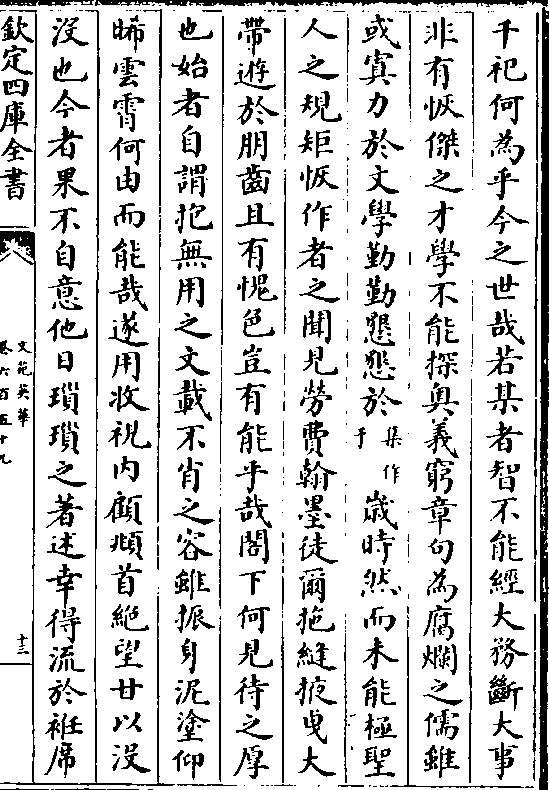 千祀何為乎今之世哉若某者智不能經大務斷大事
非有恢傑之才學不能探奥義窮章句為腐爛之儒雖
或寘力於文學勤勤懇懇於集作于歲時然而未能極聖
人之規矩恢作者之聞見勞費翰墨徒爾拖縫掖曳大
帶遊於朋齒且有愧色豈有能乎哉閣下何見待之厚
也始者自謂抱無用之文載不肖之容雖振身泥塗仰
睎雲霄何由而能哉遂用收視内顧頫首絶望甘以沒
沒也今者果不自意他日瑣瑣之著述幸得流於袵席
欽定四庫全書
文苑英華
卷六百五十九
十三